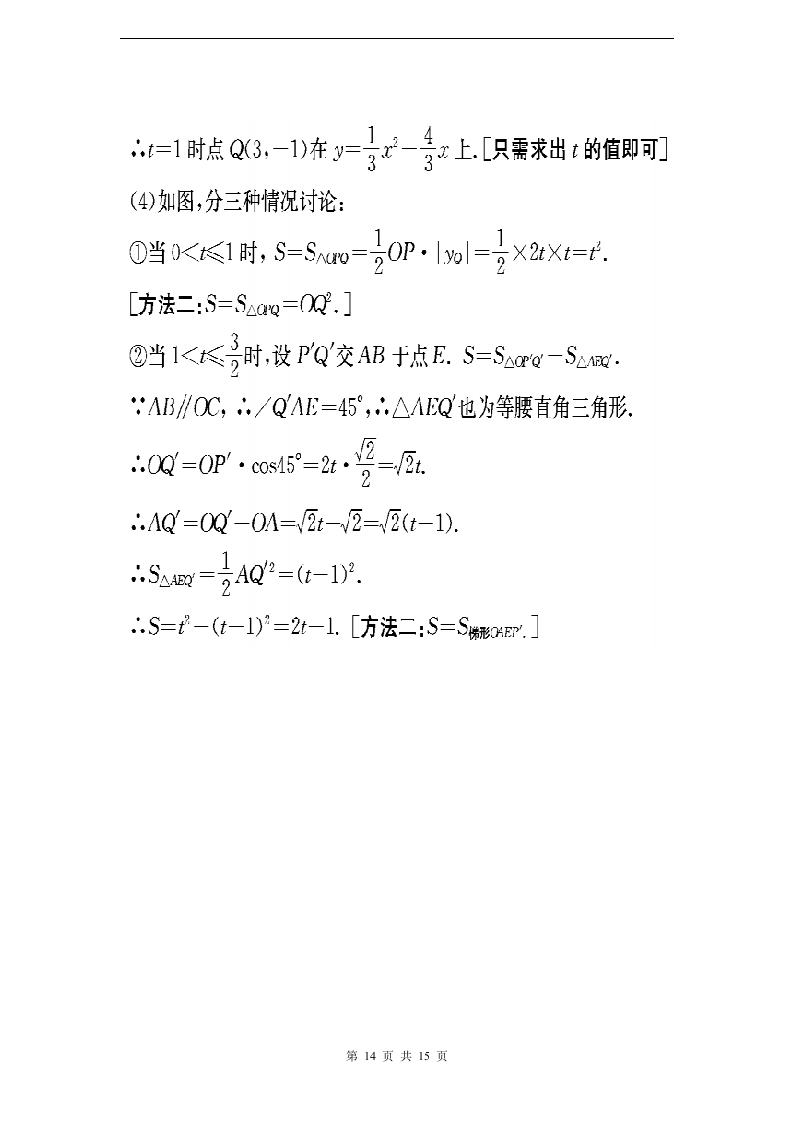 ∴t=1时点Q(3,-1)在y=1/3x²-4/3x上.[只需求出t的值即可]
(4)如图,分三种情况讨论:
①当0<t≤1时, S=S△OPQ=1/2OP·|yQ|=1/2×2t×t=t².
[方法二:S=S△OPQ=OQ².]
②当1<t≤3/2时,设P′Q′交AB于点E. S=S△OP′Q′-S△AEQ′.
∵AB∥OC, ∴∠Q′AE=45°,∴△AEQ′也为等腰直角三角形.
∴OQ′=OP′·cos45°=2t·√2/2=√2t.
∴AQ′=OQ′-OA=√2t-√2=√2(t-1).
∴S△AEQ′=1/2AQ′²=(t-1)².
∴S=t²-(t-1)²=2t-1. [方法二:S=S梯形OAEP′.]
第 14 页 共 15 页